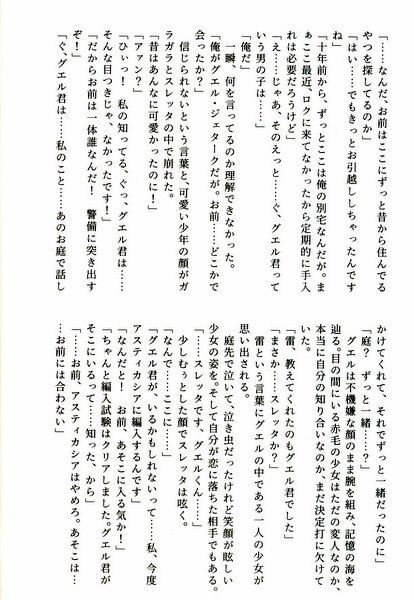 「……なんだ、お前はここにずっと昔から住んでる
やつを探してるのか」
「はい……でもきっとお引越ししちゃったんです
ね」
「十年前から、ずっとここは俺の別宅なんだが。ま
ぁここ最近、ロクに来てなかったから定期的に手入
れは必要だろうけど」
「え……じゃあ、そのえっと……ぐ、グエル君って
いう男の子は……」
「俺だ」
一瞬、何を言ってるのか理解できなかった。
「俺がグエル・ジェタークだが。お前……どこかで
会ったか？」
信じられないという言葉と、可愛い少年の顔がガ
ラガラとスレッタの中で崩れた。
「昔はあんなに可愛かったのに！」
「アァン？」
「ひぃっ！　私の知ってる、ぐっ、グエル君は……
そんな目つきじゃ、なかったです！」
「だからお前は一体誰なんだ！　警備に突き出す
ぞ！」
「ぐ、グエル君は……私のこと……あのお庭で話し
かけてくれて、それでずっと一緒だったのに」
「庭？　ずっと一緒……？」
グエルは不機嫌な顔のまま腕を組み、記憶の海を
辿る。目の間にいる赤毛の少女はただの変人なのか、
本当に自分の知り合いなのか、まだ決定打に欠けて
いた。
「雷、教えてくれたのもグエル君でした」
「まさか……スレッタか？」
雷という言葉にグエルの中である一人の少女が
思い出される。
庭先で泣いて、泣き虫だったけれど笑顔が眩しい
少女の姿を。そして自分が恋に落ちた相手でもある。
「……スレッタです、グエルくん……」
少しむぅとした顔でスレッタは呟く。
「なんで……ここに……」
「グエル君が、いるかもしれないって……私、今度
アスティカシアに編入するんです」
「なんだと！　お前、あそこに入る気か！」
「ちゃんと編入試験はクリアしました。グエル君が
そこにいるって……知った、から」
「……お前、アスティカシアはやめろ。あそこは…
…お前には合わない」